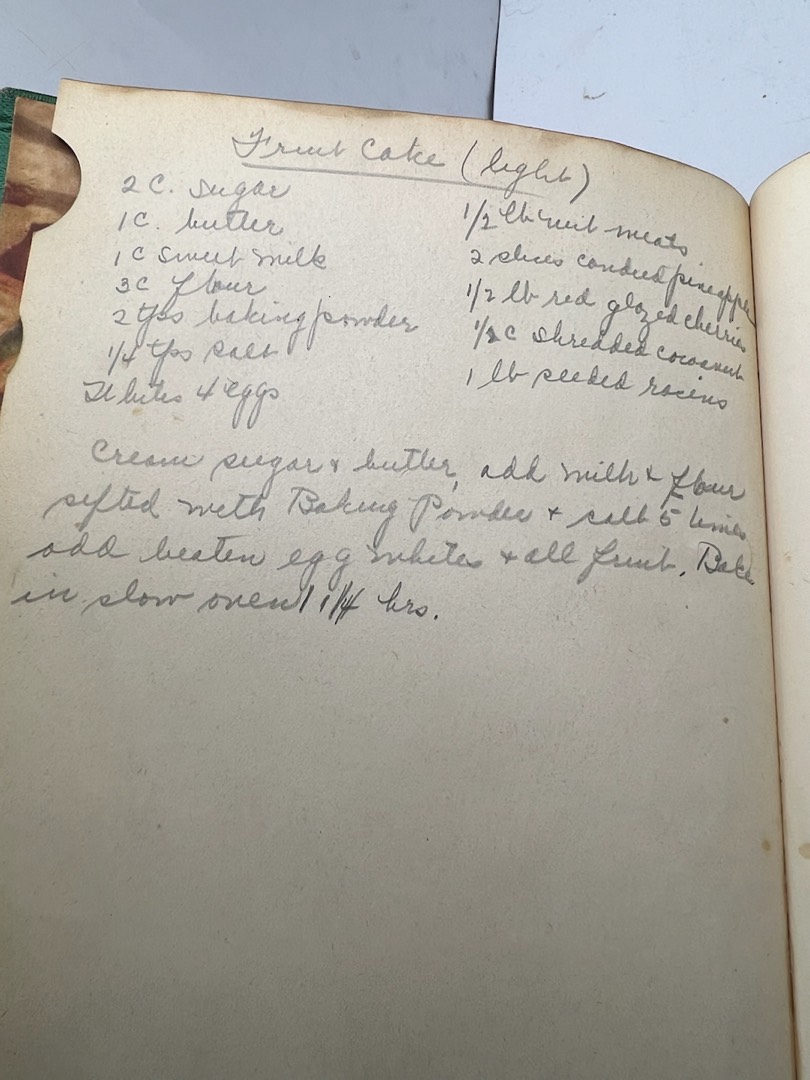 Fruit Cake (light)
2 C. sugar
1 C. butter
1 C sweet milk
3 C flour
2 tps baking powder
1/4 tps salt
Whites 4 eggs
1/2 lb nut meats
2 slices candied pineapple
1/2 lb red glazed cherries
1/2 C shredded cocoanut
1 lb seeded racins
Cream sugar & butter, add milk & flour
sifted with Baking Powder & salt 5 times
add beaten egg whites & all fruit. Bake
in slow oven 1 1/4 hrs.